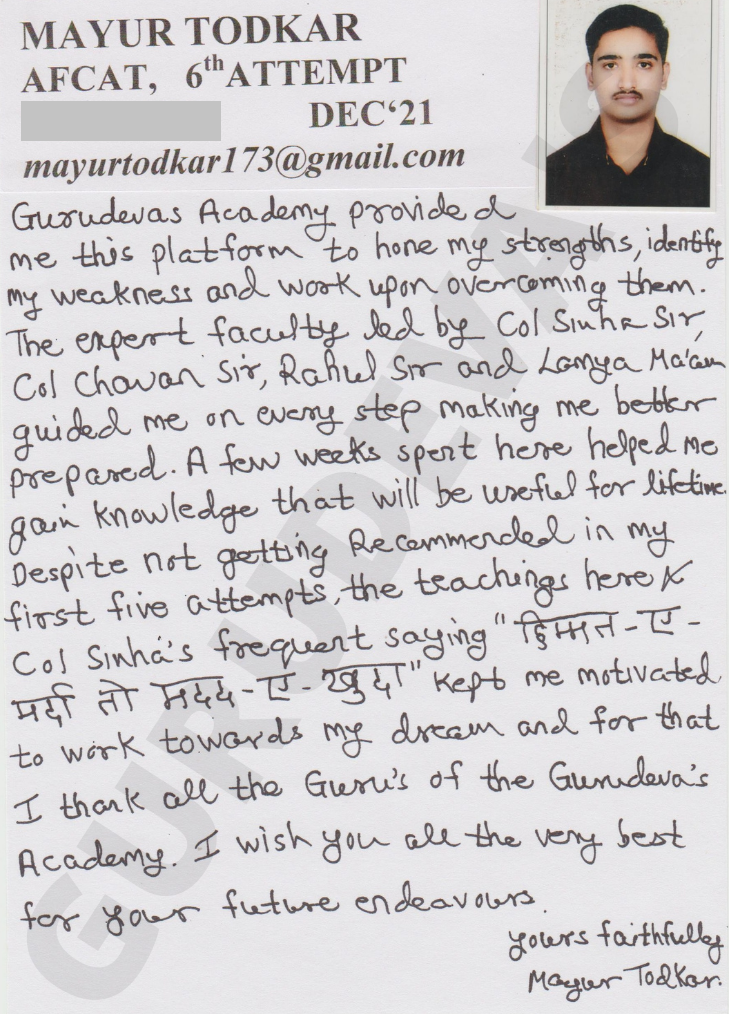 MAYUR TODKAR
AFCAT, 6th ATTEMPT
DEC‘21
mayurtodkar173@gmail.com
Gurudevas Academy provided
me this platform to hone my strengths, identify
my weakness and work upon overcoming them.
The expert faculty led by Col Sinha Sir,
Col Chavan Sir, Rahul Sir and Lamya Ma'am
guided me on every step making me better
prepared. A few weeks spent here helped me
gain knowledge that will be useful for lifetime.
Despite not getting Recommended in my
first five attempts, the teachings here &
Col Sinha's frequent saying "हिम्मत-ए-
मर्दा तो मदद-ए-खुदा" kept me motivated
to work towards my dream and for that
I thank all the Guru's of the Gurudeva's
Academy. I wish you all the very best
for your future endeavours.
Yours faithfully
Mayur Todkar.
GURUDEVA'S